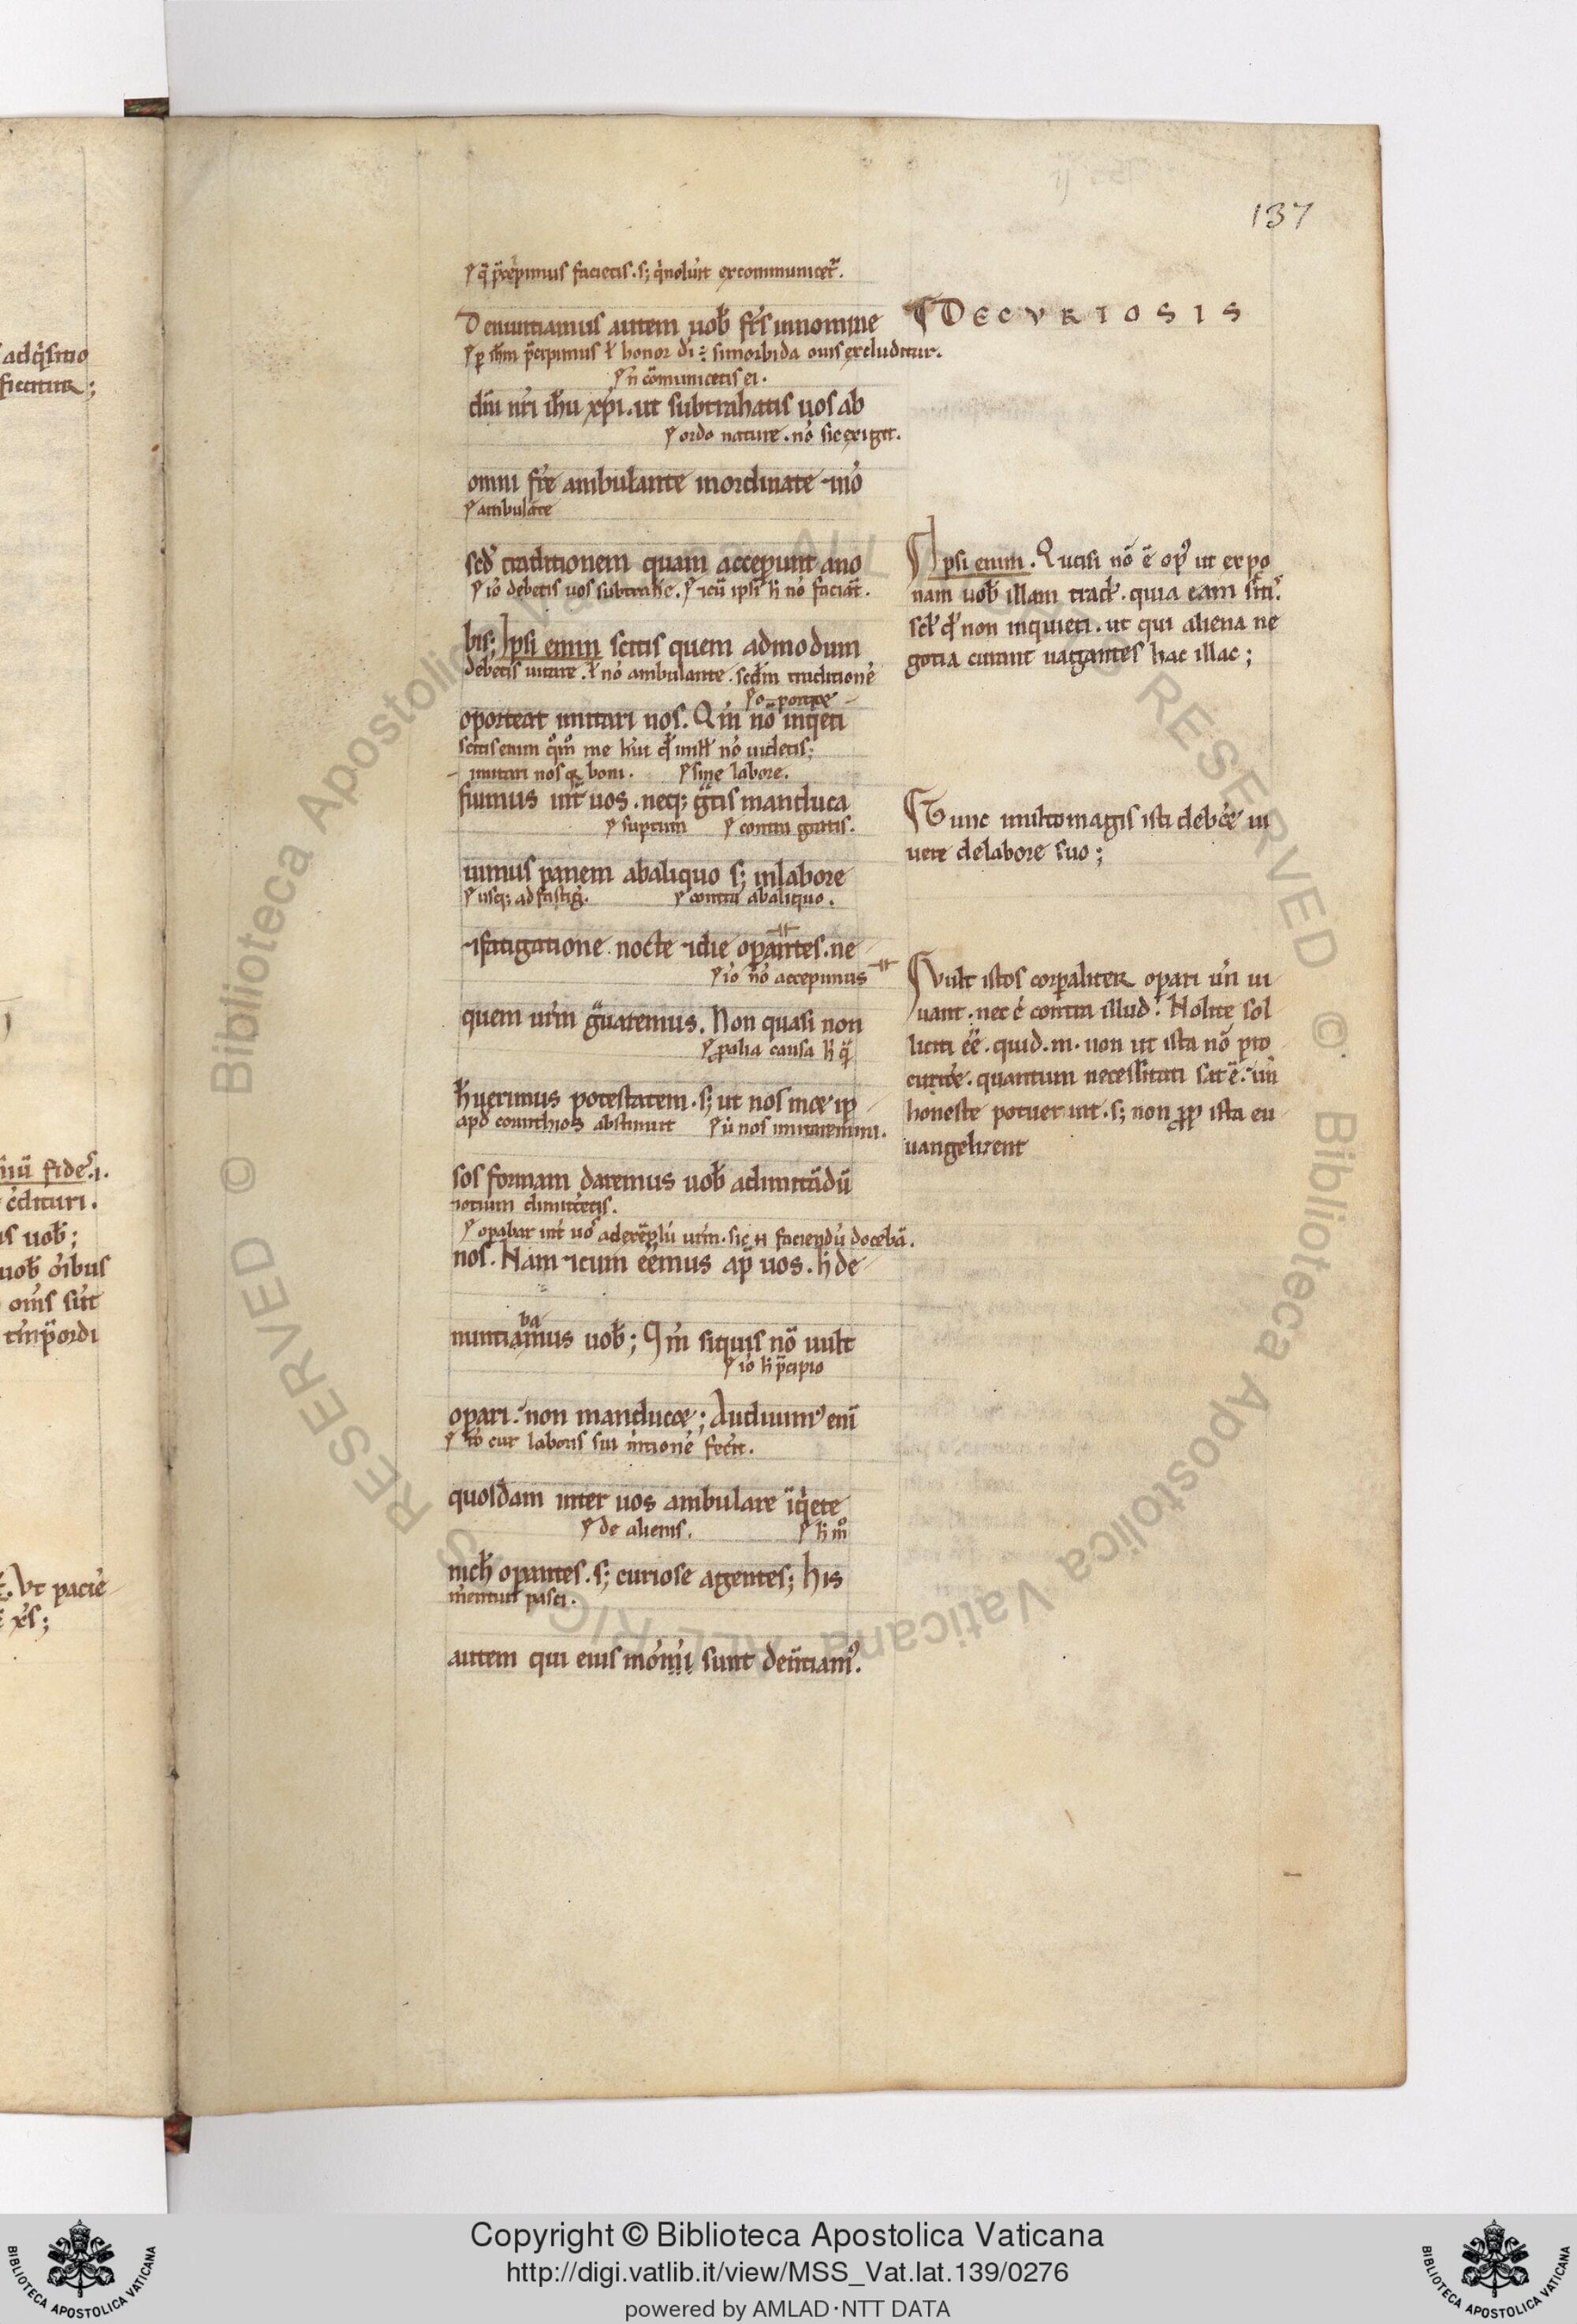 137
q̄ p̄cepimus facietis . s; q̇ nolūt excommunicet᷒.
Denuntiamus autem uob̄ fr̄s innomine
p̄cipimus ł honor dī : si morbida ouis excluditur.
n̄ cōmunicetis ei .
dn̄i nr̄i ih̄u xp̄i . ut subtrahatis uos ab
ordo nature . nō sic exigit .
omni fr̄e ambulante inordinate ⁊ nō
ambulāte
scd̄ traditionem quam acceper̄unt a no
iō debetis uos subtrahe᷒ . ⁊ cū ipsi h̄ nō faciāt .
bis; Ipsi enim scitis quem admodum
debetis uitare . ł nō ambulante . scd̄m traditionē
oporteat imitari nos. Qm̄ nō inq̇eti
scitis enim me
imitari nos boni . sine labore .
fuimus int̄ uos . neq; gͣtis manduca
suptum contra gratis .
uimus panem abaliquo s; inlabore
usq; ad fastiḡ . contra abaliquo .
⁊ fatigatione nocte ⁊ die operantes . ne
iō nō accepimus
quem ur̄m gͣuaremus. Non quasi non
alia causa h̄ q̄
h̄uerimus potestatem . s; ut nos met ip
apd̄ corinthios abstinuit ū nos imitaremini .
sos formam daremus uob̄ adimitādū
⁊ otium dimittetis .
operabar int̄ uos ad exēplū ur̄m . sic faciendū docebā .
nos. Nam ⁊ cum eēmus ap̄ uos . h̄ de
ba
nuntiamus uob̄; Qm̄ siquis nō uult
iō h̄ p̄cipio
operari . non manducet; Audiuim᷒ enī
cur laboris sui m̄tionē fecit .
quosdam inter uos ambulare īq̇ete
de alienis . h̄ mō
nich̄ operantes . s; curiose agentes; his
m̄entur pasci .
autem qui eius mōi sunt denūtiam᷒.
DE CVRIOSIS
Ipsi enim . Quasi nō ē op᷒ ut expo
nam uob̄ illam trad̄ . quia eam scitis
scł qđ non inquieti . ut qui aliena ne
gotia curant uagantes hac illac ;
Tunc multomagis isti debēt ui
uere de labore suo ;
Vult istos corporaliter operari un̄ ui
uant . nec ē contra illud . Nolite sol
liciti eē . quid . m . non ut ista nō pro
curēt . quantum necessitati sat ē . un̄
honeste potuerint . s; non ꝓp ista eu
uangelizent
adq̇sitio
ficitur ;
fidē . i .
édituri .
is uob̄ ;
uob̄ oībus
om̄s sūt
. Vt pacie
xs̄ ;
Copyright © Biblioteca Apostolica Vaticana
http://digi.vatlib.it/view/MSS_Vat.lat.139/0276
powered by AMLAD·NTT DATA
BIBLIOTECA APOSTOLICA VATICANA
BIBLIOTECA APOSTOLICA VATICANA